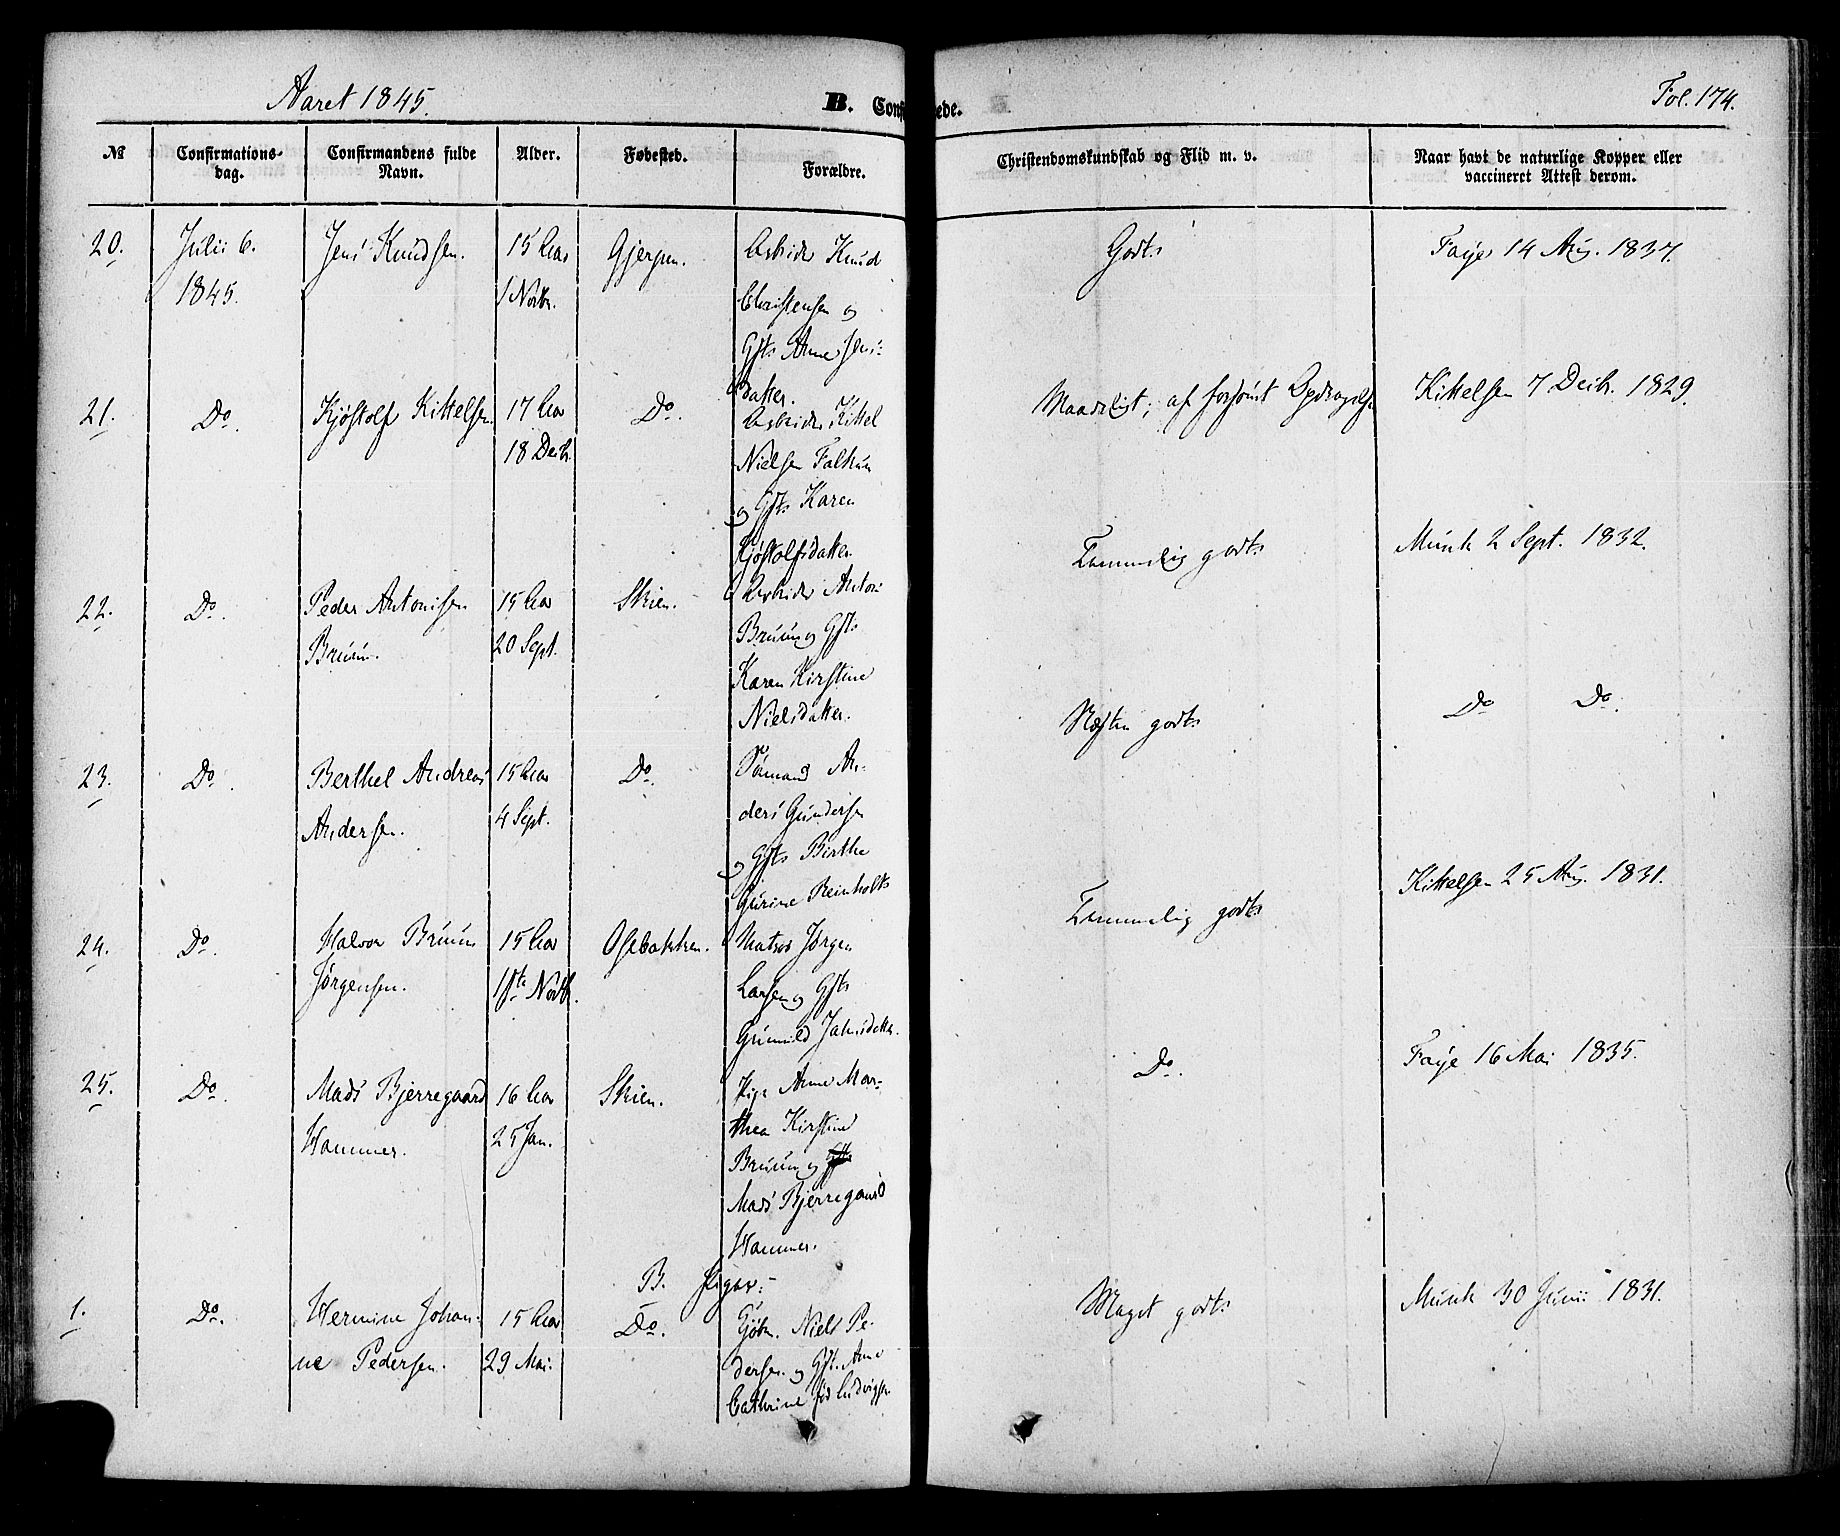 Aaret 1845.
B. Conf
ede.
Fol. 174.
№
Confirmations-
dag.
Confirmandens fulde
Navn.
Alder.
Fødested.
Forældre.
Christendomskundskab og Flid m. v.
Naar havt de naturlige Kopper eller
vaccineret Attest derom.
20.
Julii 6.
1845.
Jens Knudsen.
15 Aar
1 Novbr.
Gjerpen.
Arbeider Knud
Christensen og
Gfts Anne Jens-
datter.
Godt
Faye 14 Aug. 1837.
21.
Do.
Kjøstolf Kittelsen.
17 Aar
18 Decb.
Do.
Arbeider Kittel
Nielsen Falkum
og Gfts Karen
Kjøstolfsdatter
Maadeligt; af forsømt Opdragelse
Kittelsen 7 Decb. 1829.
22.
Do.
Peder Antonisen
Bruun.
15 Aar
20 Sept.
Skien.
Arbeider Anton
Bruun og Gfts
Karen Kirstine
Nielsdatter.
Temmelig godt
Munk 2 Sept. 1832.
23.
Do.
Berthel Andreas
Andersen.
15 Aar
4 Sept.
Do.
Sømand An-
ders Gundersen
og Gfts Birthe
Gurine Reinholts
Næsten godt
Do Do.
24.
Do.
Halvor Bruun
Jørgensen.
15 Aar
1ste Novb.
Osebakken.
Matros Jørgen
Larsen og Gfts
Gunnild Jahnsdatter.
Temmelig godt
Kittelsen 25 Aug. 1831.
25.
Do.
Mads Bjerregaard
Hammer.
16 Aar
25 Jan.
Skien.
Pige Anne Mar-
thea Kirstine
Bruun og
Mads Bjerregaard
Hammer.
Do.
Faye 16 Mai 1835.
B. Piger:
1.
Do.
Hermine Johan-
ne Pedersen.
15 Aar
29 Mai.
Do.
Gjøbm. Niels Pe-
dersen og Gft. Anne
Cathrine fød Ludvigsen
Meget godt
Munk 30 Junii 1831.